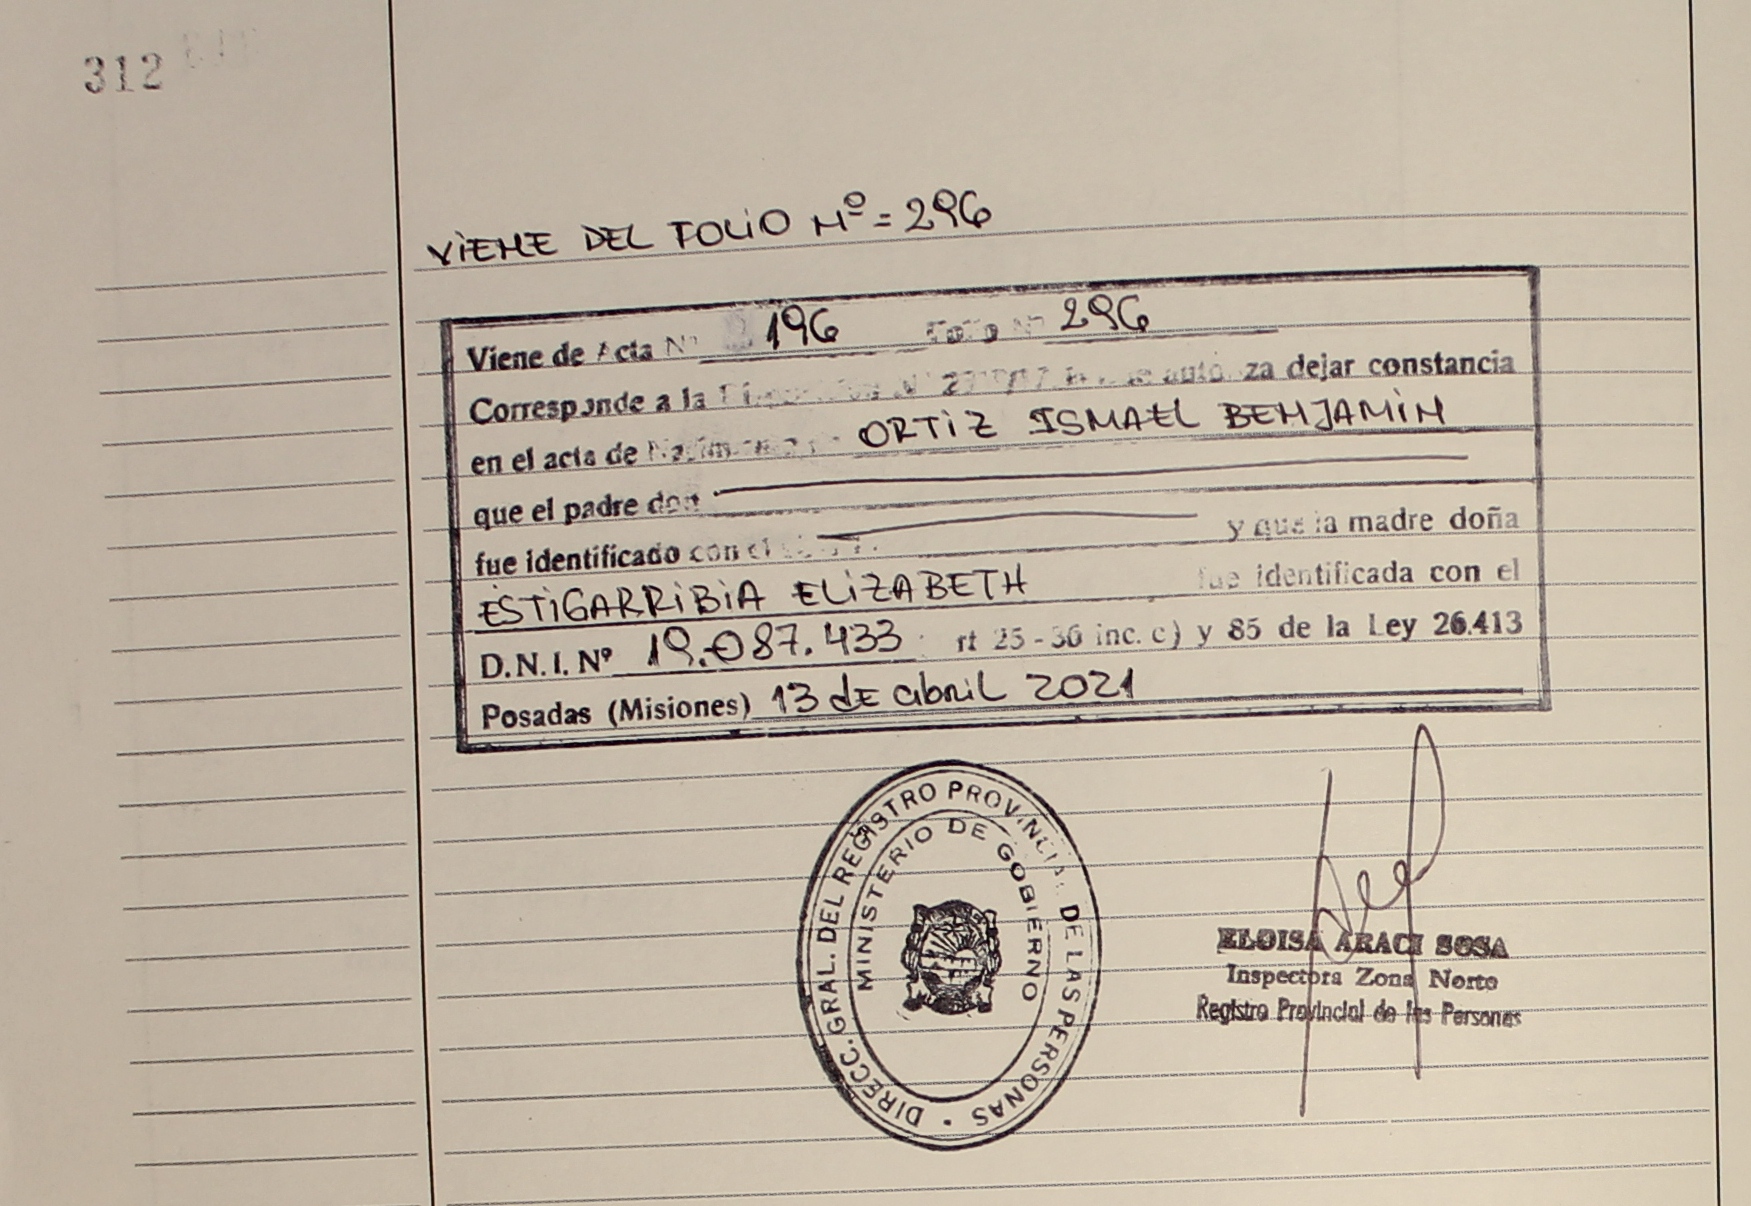 312
VIENE DEL FOLIO Nº = 296
Viene de Acta Nº 196 Folio Nº 296
Corresponde a la autoriza dejar constancia
en el acta de Nacimiento ORTIZ ISMAEL BENJAMIN
que el padre don
fue identificado con el y que la madre doña
ESTIGARRIBIA ELIZABETH fue identificada con el
D.N.I. Nº 19.087.433 rt 25 - 36 inc. c) y 85 de la Ley 26.413
Posadas (Misiones) 13 de abril 2021
DIRECC. GRAL. DEL REGISTRO PROVINCIAL DE LAS PERSONAS
MINISTERIO DE GOBIERNO
ELOISA ARACI SOSA
Inspectora Zona Norte
Registro Provincial de las Personas